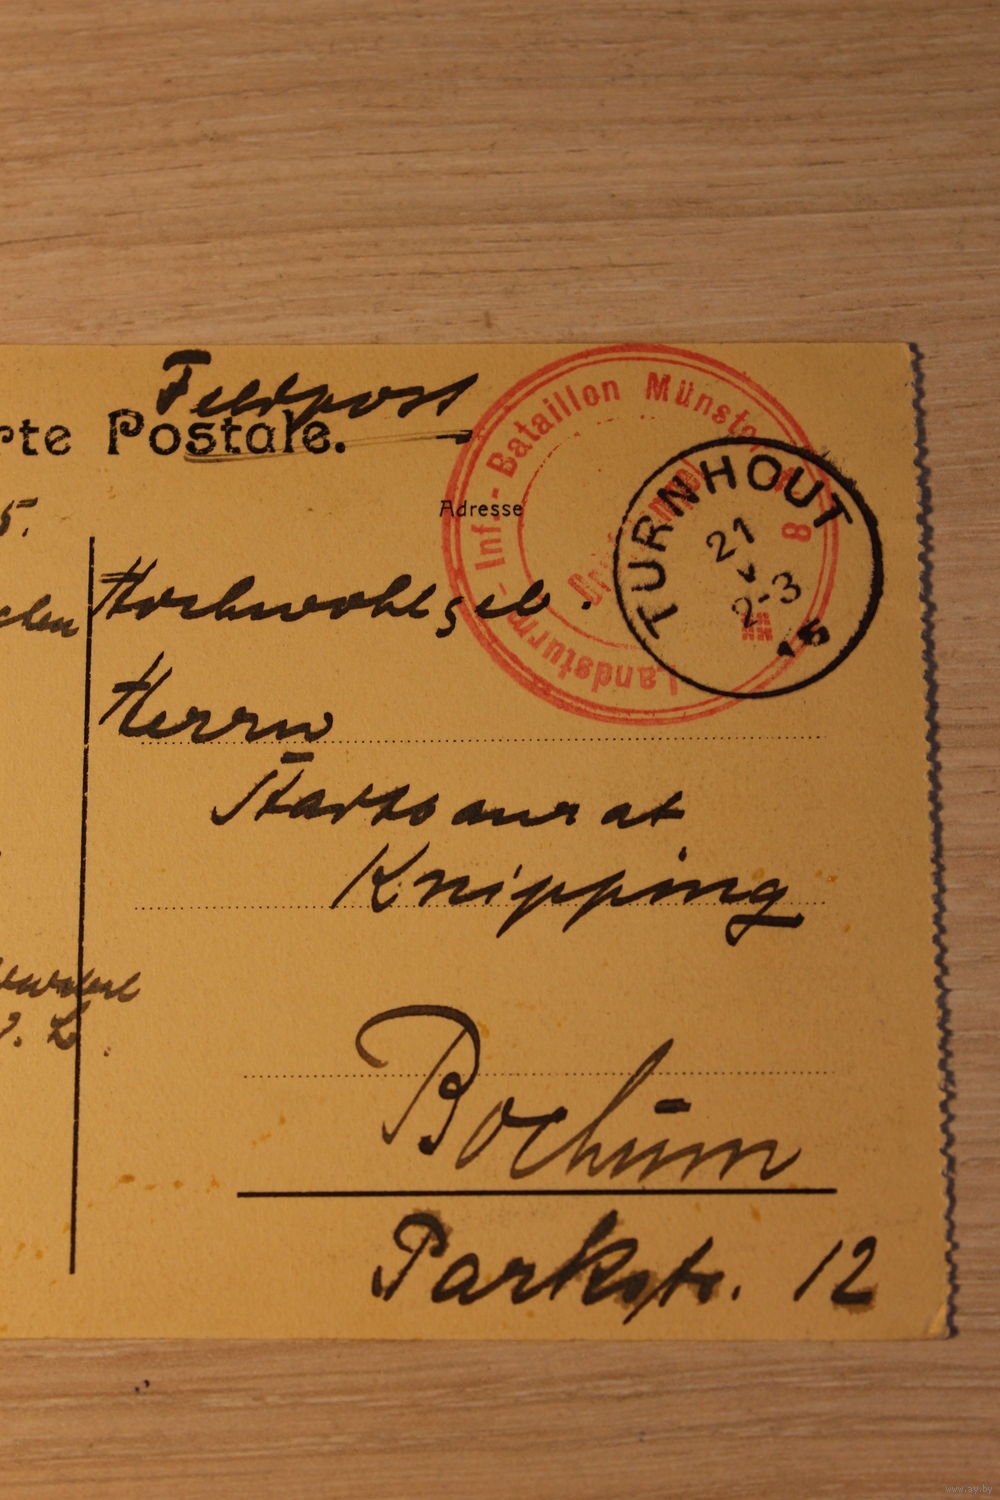 Feldpost
rte Postale.
Landsturm-Inf.-Bataillon Münster
8
TURNHOUT
21
V
2-3
15
Adresse
5.
chen
Hochwohlgeb.
Herrn
Stadtbaurat
Knipping
v. L.
Bochum
Parkstr. 12
www.ay.by